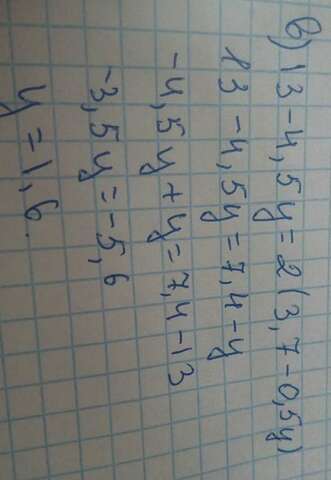 в) 13-4,5y=2(3,7-0,5y)
13-4,5y=7,4-y
-4,5y+y=7,4-13
-3,5y=-5,6
y=1,6.